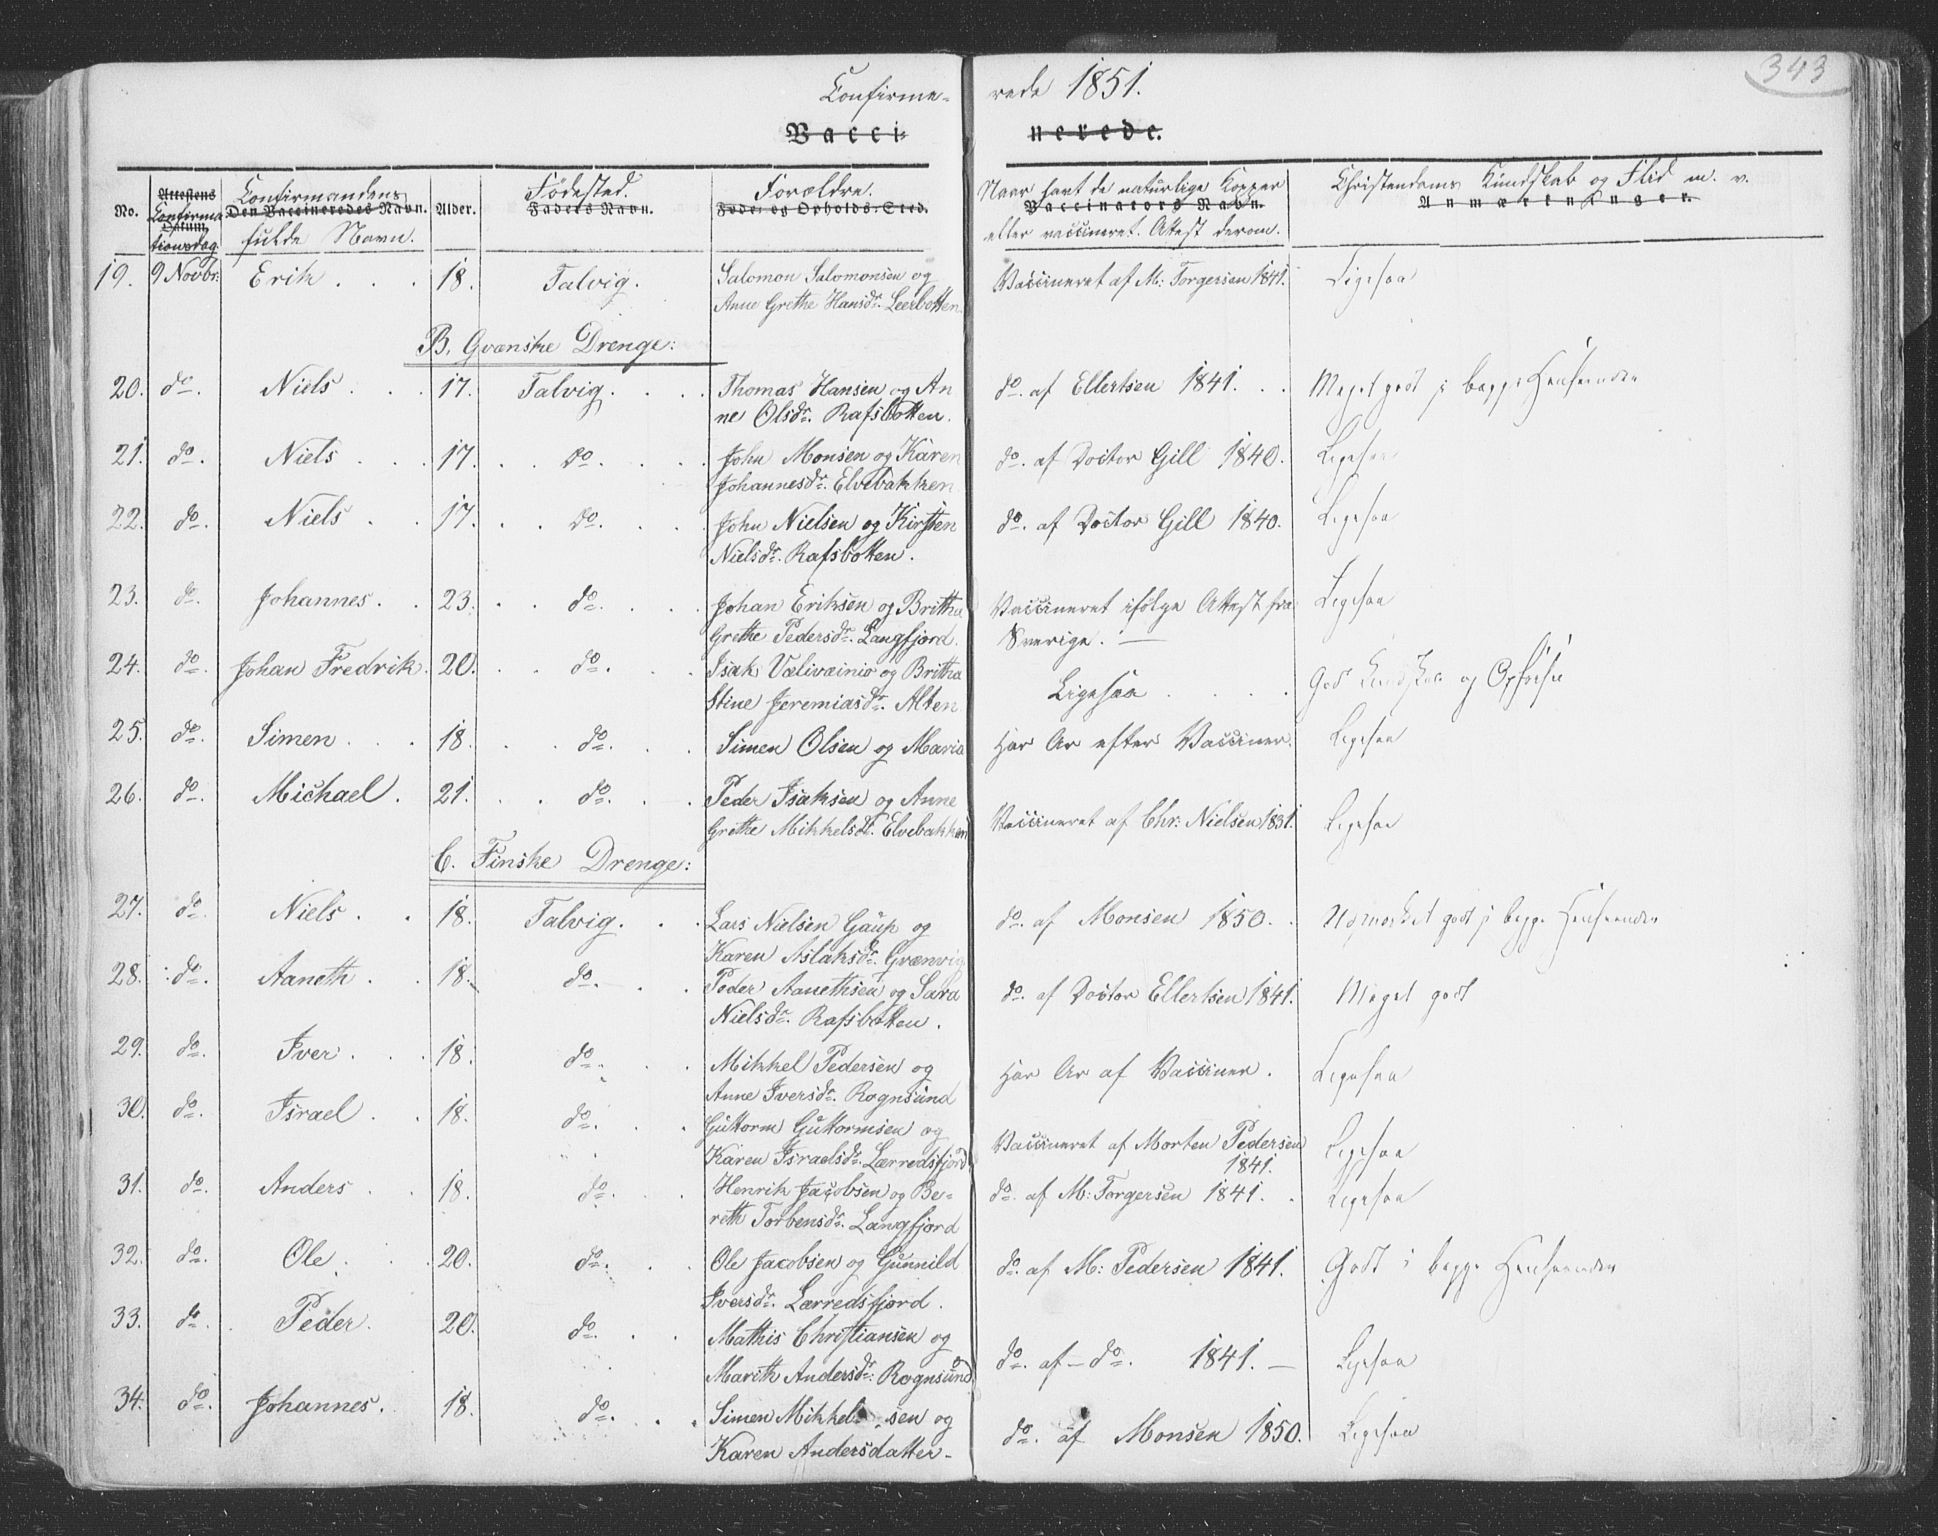 343
Confirme- rede 1851.
Vacci- nerede.
No. Attestens Datum. Confirmationsdag Den Vaccineredes Navn. Confirmandens fulde Navn. Alder. Fødested. Faders Navn. Forældre. Føde- og Opholds-Sted. Naar havt de naturlige Kopper Vaccinators Navn. eller vaccineret. Attest derom. Christendoms Kundskab og Flid m. v. Anmærkninger.
19. 9 Novbr. Erik . . . 18. Talvig. Salomon Salomonsen og Vaccineret af M: Torgersen 1841. Ligesaa
Anne Grethe Hansdr. Leerbotten.
B. Qvænske Drenge:
20. do. Niels . . . 17. Talvig . . . Thomas Hansen og An do. af Ellertsen 1841. . . Meget godt i begge Henseender
ne Olsdr. Rafsbotten.
21. do. Niels . . . 17. . . do. . . . John Monsen og Karen do. af Doctor Gill 1840. Ligesaa
Johannesdr. Elvebakken
22. do. Niels . . 17. . . do. . . . John Nielsen og Kirsten do. af Doctor Gill 1840. Ligesaa
Nielsdr. Rafsbotten.
23. do. Johannes. . 23. . . do. . . . Johan Eriksen og Britha Vaccineret ifølge Attest fra Ligesaa
Grethe Pedersdr. Langfjord. Sverige. —
24. do. Johan Fredrik. 20. . . do. . . Isak Välivainio og Britha Ligesaa . . . . God Kundskab og Opførsel
Stine Jeremiasdr. Alten
25. do. Simen . . . 18. . . do. . . Simen Olsen og Maria Har Ar efter Vacciner. Ligesaa
26. do. Michael . 21. . . do. . . Peder Isaksen og Anne Vaccineret af Chr: Nielsen 1831. Ligesaa
Grethe Mikkelsdr. Elvebakken
C. Finske Drenge:
27. do. Niels . . 18. Talvig. . . Lars Nielsen Gaup og do. af Monsen 1850. . Udmærket godt i begge Henseender
Karen Aslaksdr. Qvænvig
28. do. Aaneth . . 18. do. . . Peder Aanethsen og Sara do. af Doctor Ellertsen 1841. Meget godt
Nielsdr. Rafsbotten.
29. do. Iver . . . 18. do. . . Mikkel Pedersen og Har Ar af Vacciner. Ligesaa
Anne Iversdr. Rognsund
30. do. Israel . . 18. do. . . Guttorm Guttormsen og Vaccineret af Morten Pedersen Ligesaa
Karen Israelsdr. Lærredsfjord 1841.
31. do. Anders . . 18. do. . . Henrik Jacobsen og Be- do. af M: Torgersen 1841. . Ligesaa
reth Torbensdr. Langfjord
32. do. Ole . . . 20. do. . . Ole Jacobsen og Gunnild do. af M: Pedersen 1841. Godt i begge Henseender
Iversdr. Lærredsfjord.
33. do. Peder. 20. do. . . Mathis Christiansen og do. af — do. 1841. — Ligesaa
Marith Andersdr: Rognsund
34. do. Johannes. 18. do. . . Simen Mikkelsen og do. af Monsen 1850. Ligesaa
Karen Andersdatter -